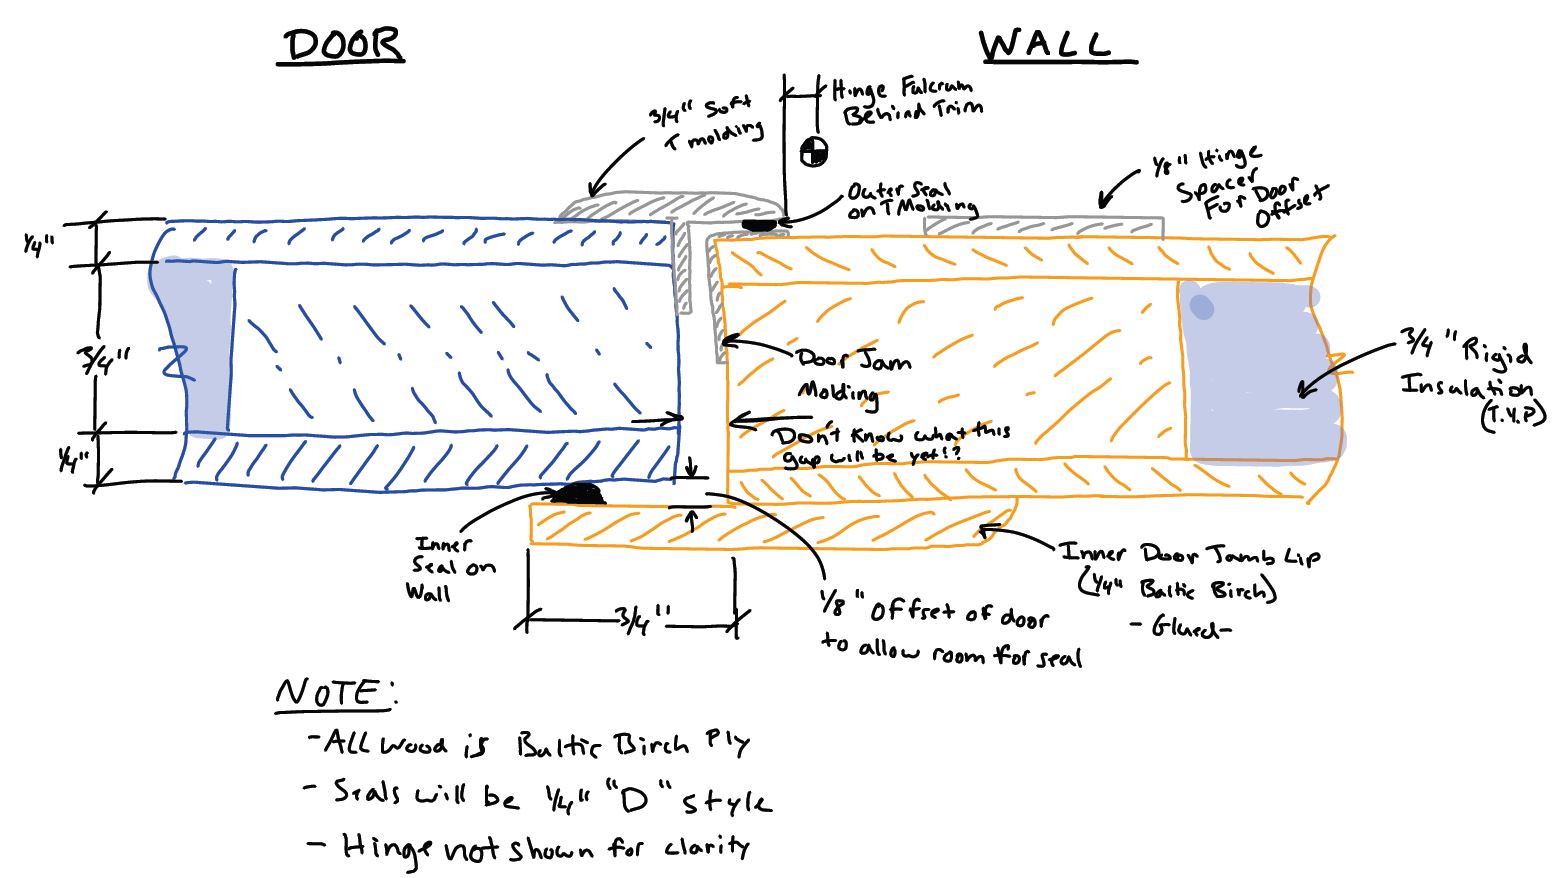 DOOR
WALL
3/4" Soft
T molding
Hinge Fulcrum
Behind Trim
Outer Seal
on T Molding
1/8" Hinge
Spacer
For Door
Offset
1/4"
3/4"
1/4"
Door Jam
Molding
Don't know what this
gap will be yet!?
3/4" Rigid
Insulation
(T.Y.P)
Inner
Seal on
Wall
3/4"
1/8" offset of door
to allow room for seal
Inner Door Jamb Lip
(1/4" Baltic Birch)
- Glued -
NOTE:
- ALL wood is Baltic Birch Ply
- Seals will be 1/4" "D" style
- Hinge not shown for clarity